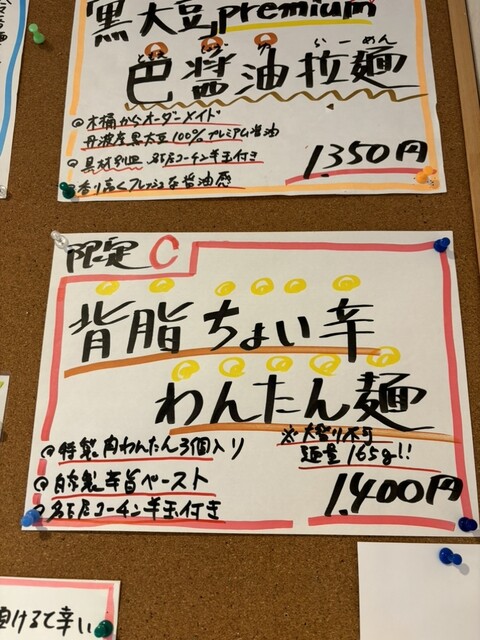 「黒大豆」premium
巴醤油拉麺
らーめん
◎木桶からオーダーメイド
丹波産黒大豆100%プレミアム醤油
◎具材別皿 名古屋コーチン半玉付き
香り高くフレッシュな醤油感
1350円
限定C
背脂ちょい辛
わんたん麺
◎特製肉わんたん3個入り
※大盛り不可
麺量165g!!
◎自家製辛旨ペースト
名古屋コーチン半玉付き
1,400円
頂けると幸い